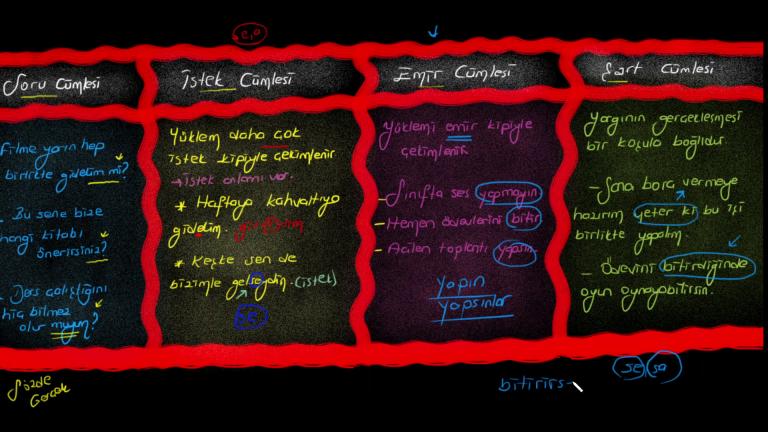 e,a
Soru Cümlesi
Filme yarın hep
birlikte gidelim mi?
Bu sene bize
hangi kitabı
önerirsiniz?
Ders çalıştığını
hiç bilmez
olur muyum?
Sözde
Gerçek
İstek Cümlesi
Yüklem daha çok
istek kipiyle çekimlenir
→istek anlamı var.
* Haftaya kahvaltıya
gidelim.
* Keşke sen de
bizimle gelseydin. (istek)
se
Emir Cümlesi
Yüklemi emir kipiyle
çekimlenir.
- Sınıfta ses yapmayın
- Hemen ödevlerini bitir
- Acilen toplantı yapsın.
yapın
yapsınlar
Şart Cümlesi
Yargının gerçekleşmesi
bir koşula bağlıdır.
- Sana borç vermeye
hazırım yeter ki bu işi
birlikte yapalım.
- Ödevini bitirdiğinde
oyun oynayabilirsin.
se sa
bitirirs